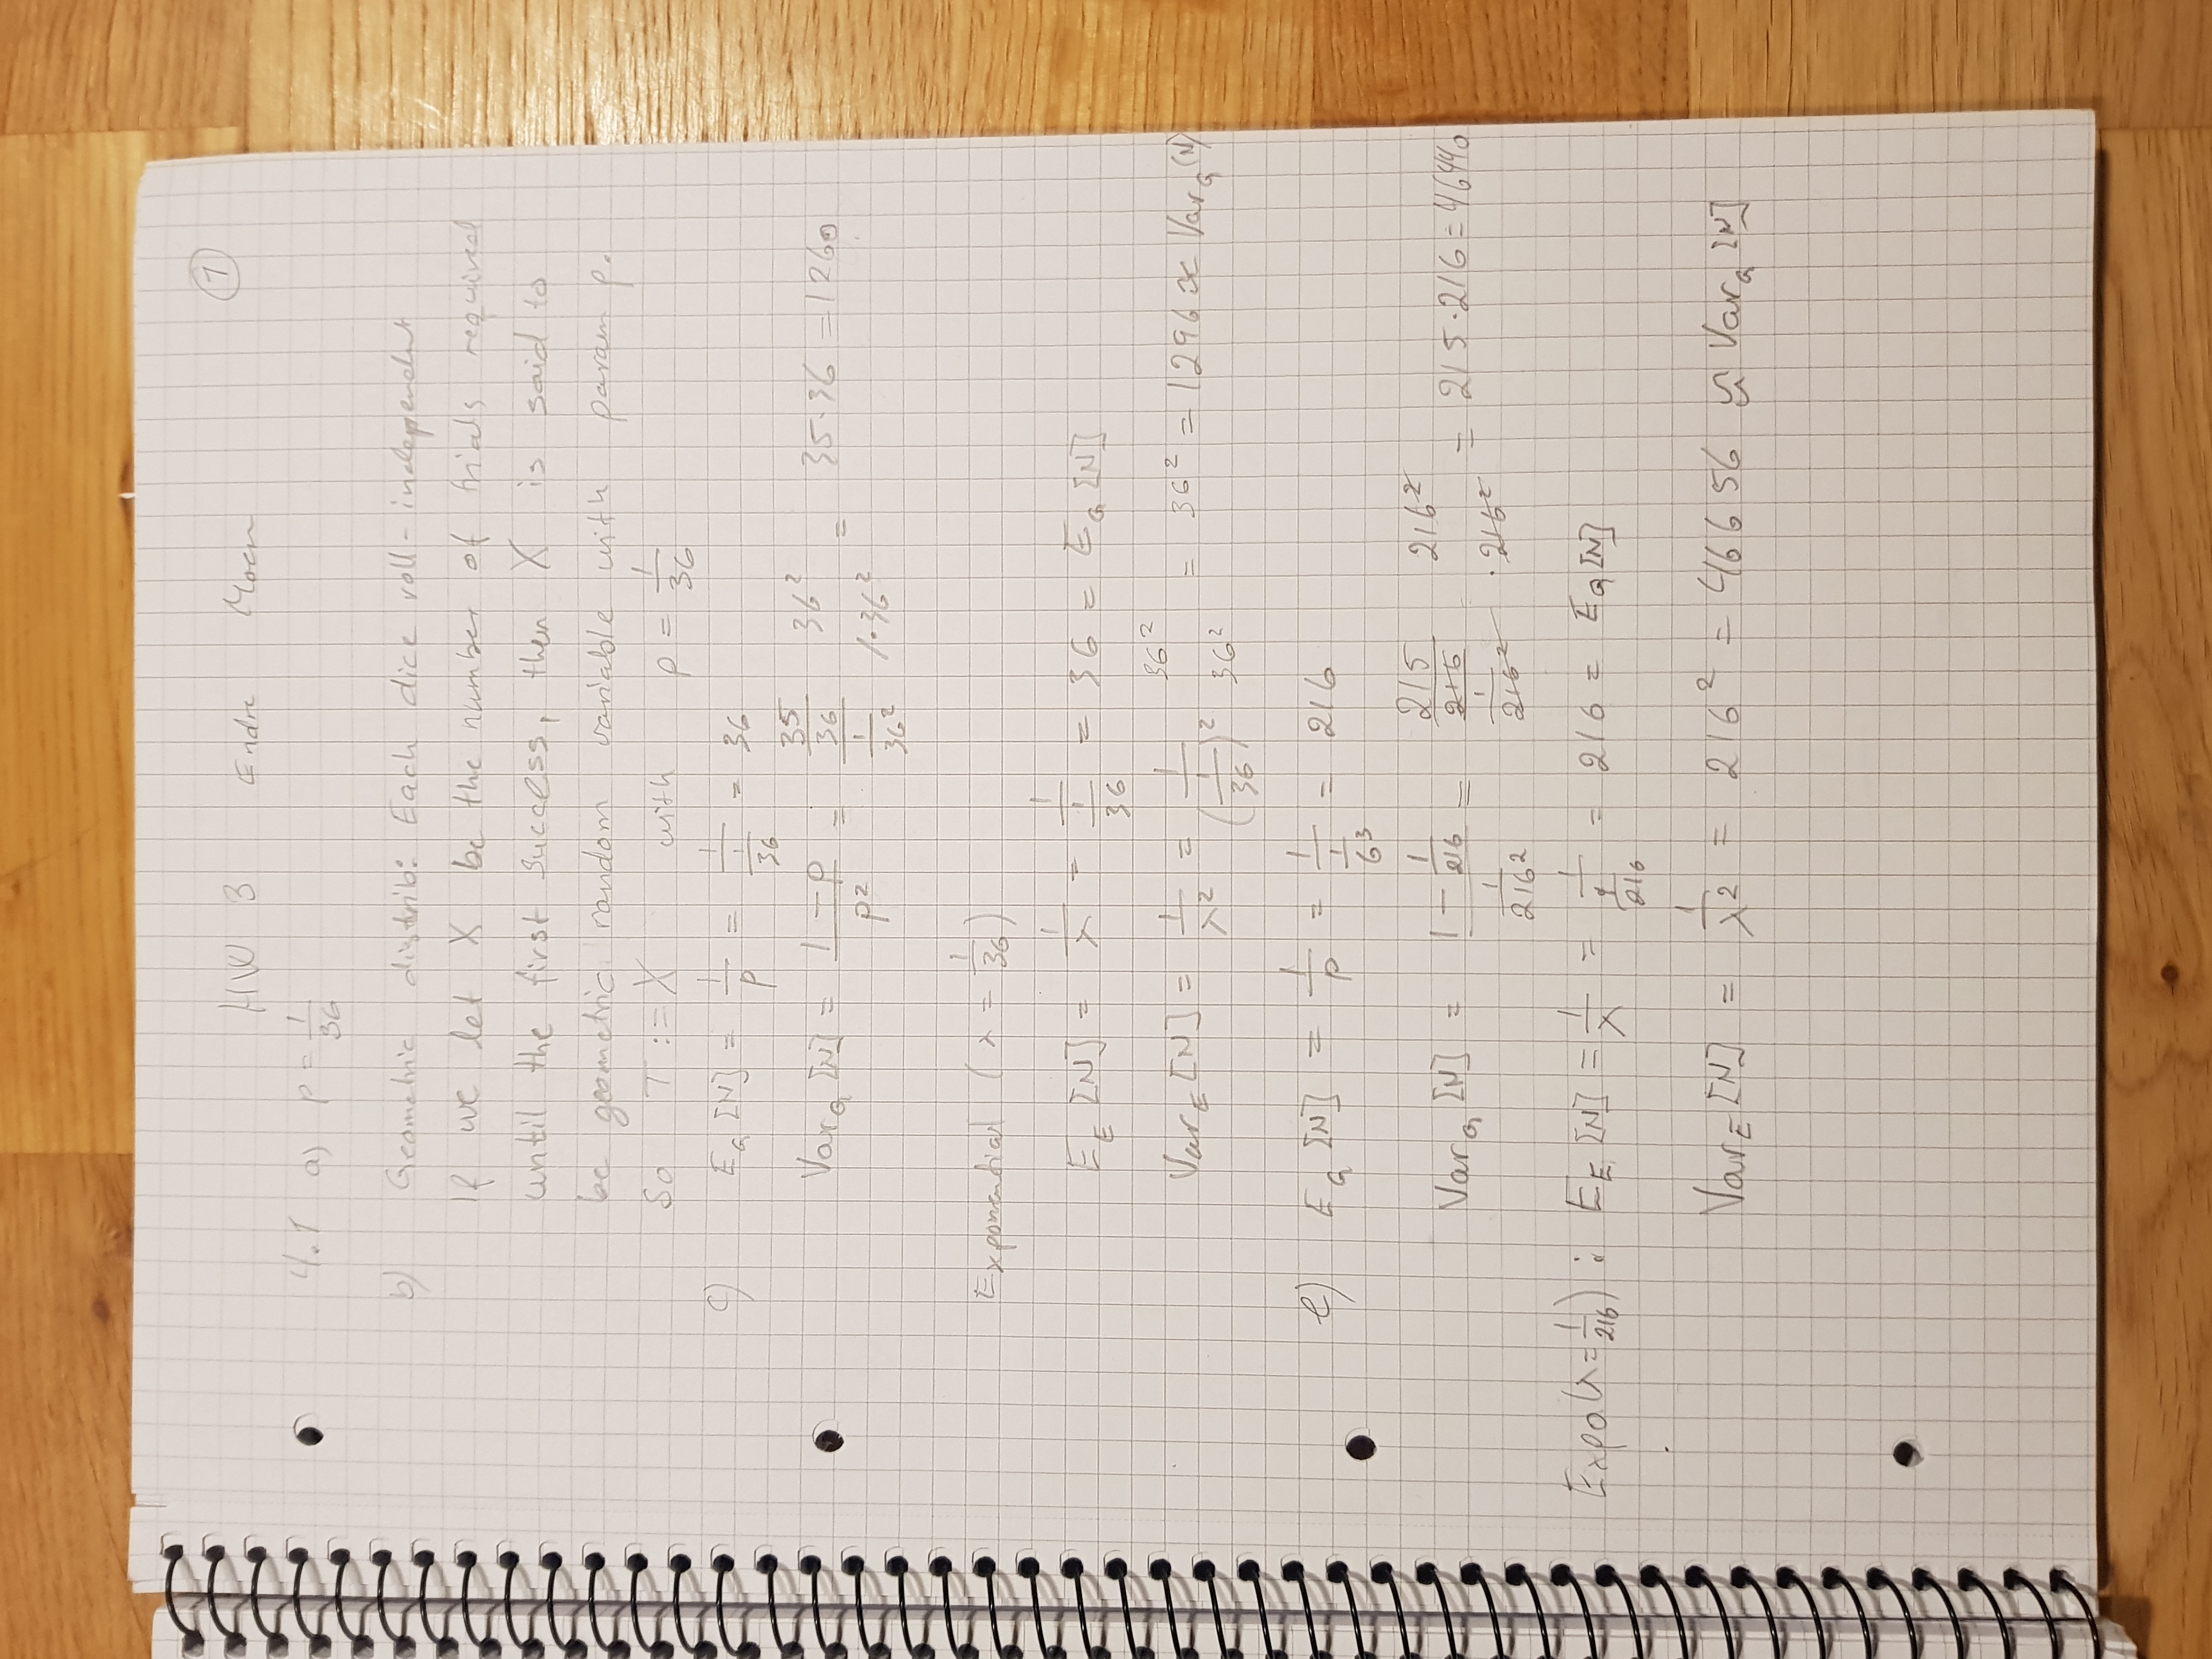 1
HW 3 Endre Moen
4.1 a) p = 1/36
b) Geometric distrib: Each dice roll - independent
If we let X be the number of trials required
until the first success, then X is said to
be geometric random variable with param p.
So T := X with p = 1/36
c) E_G [N] = 1/p = 1/(1/36) = 36
Var_G [N] = (1 - p)/p² = (35/36)/(1/36²) 36²/1·36² = 35·36 = 1260
Exponential (λ = 1/36)
E_E [N] = 1/λ = 1/(1/36) = 36 = E_G [N]
Var_E [N] = 1/λ² = 1/(1/36)² 36²/36² = 36² = 1296 ≈ Var_G (N)
e) E_G [N] = 1/p = 1/(1/6³) = 216
Var_G [N] = (1 - 1/216)/(1/216²) = (215/216)/(1/216²) 216²/·216² = 215·216 = 46440
Expo(λ = 1/216) : E_E [N] = 1/λ = 1/(1/216) = 216 = E_G [N]
Var_E [N] = 1/λ² = 216² = 46656 ≈ Var_G [N]